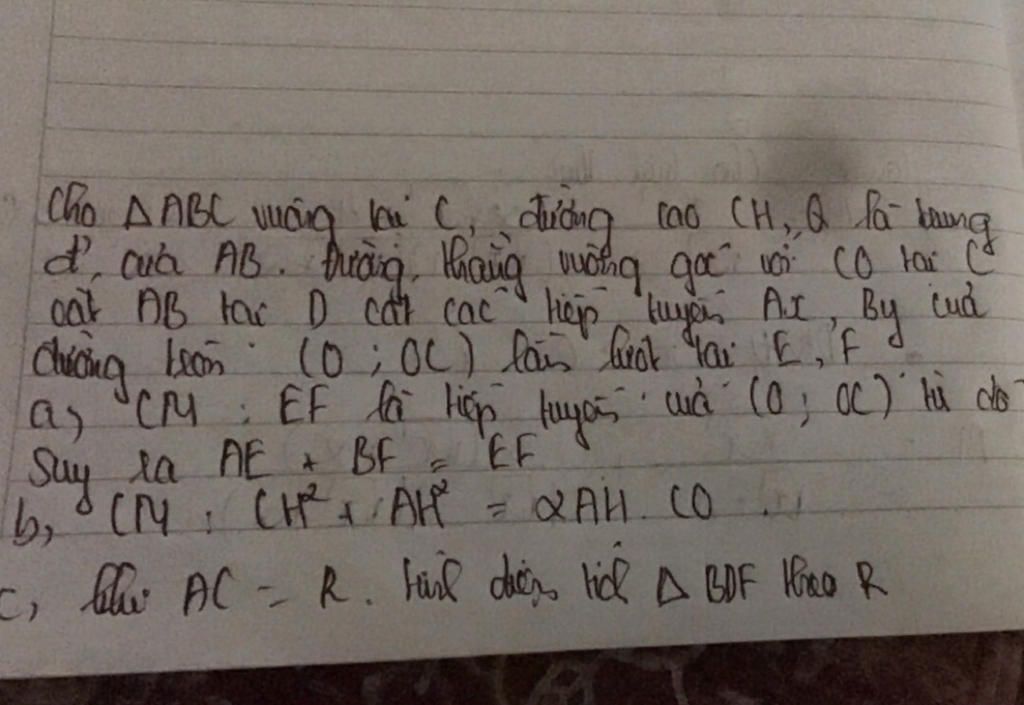 Cho ΔABC vuông tại C, đường cao CH, O là trung
đ', của AB. Đường thẳng vuông góc với CO tại C
cắt AB tại D cắt các tiếp tuyến Ax, By của
đường tròn (O ; OC) lần lượt tại E, F
a, CM : EF là tiếp tuyến của (O; OC) từ đó
Suy ra AE + BF = EF
b, CM : CH² + AH² = 2AH. CO
c, khi AC = R. tính diện tích Δ BDF theo R